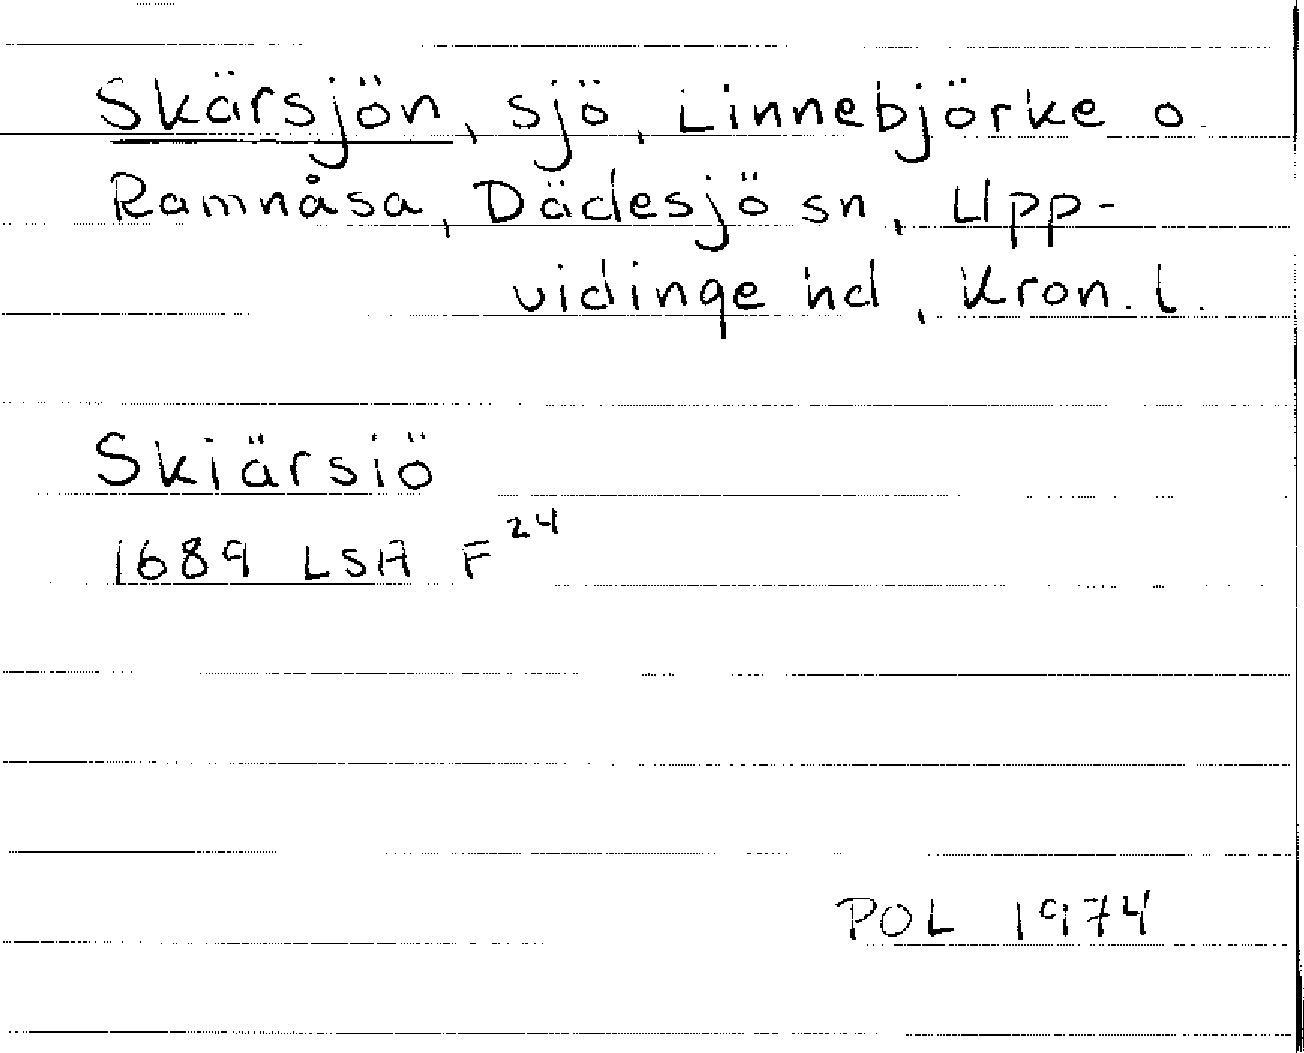 Skärsjön, sjö, Linnebjörke o.
Ramnåsa, Dädesjö sn, Upp-
vidinge hd, Kron. l.
Skiärsiö
1689 LSA F²⁴
POL 1974